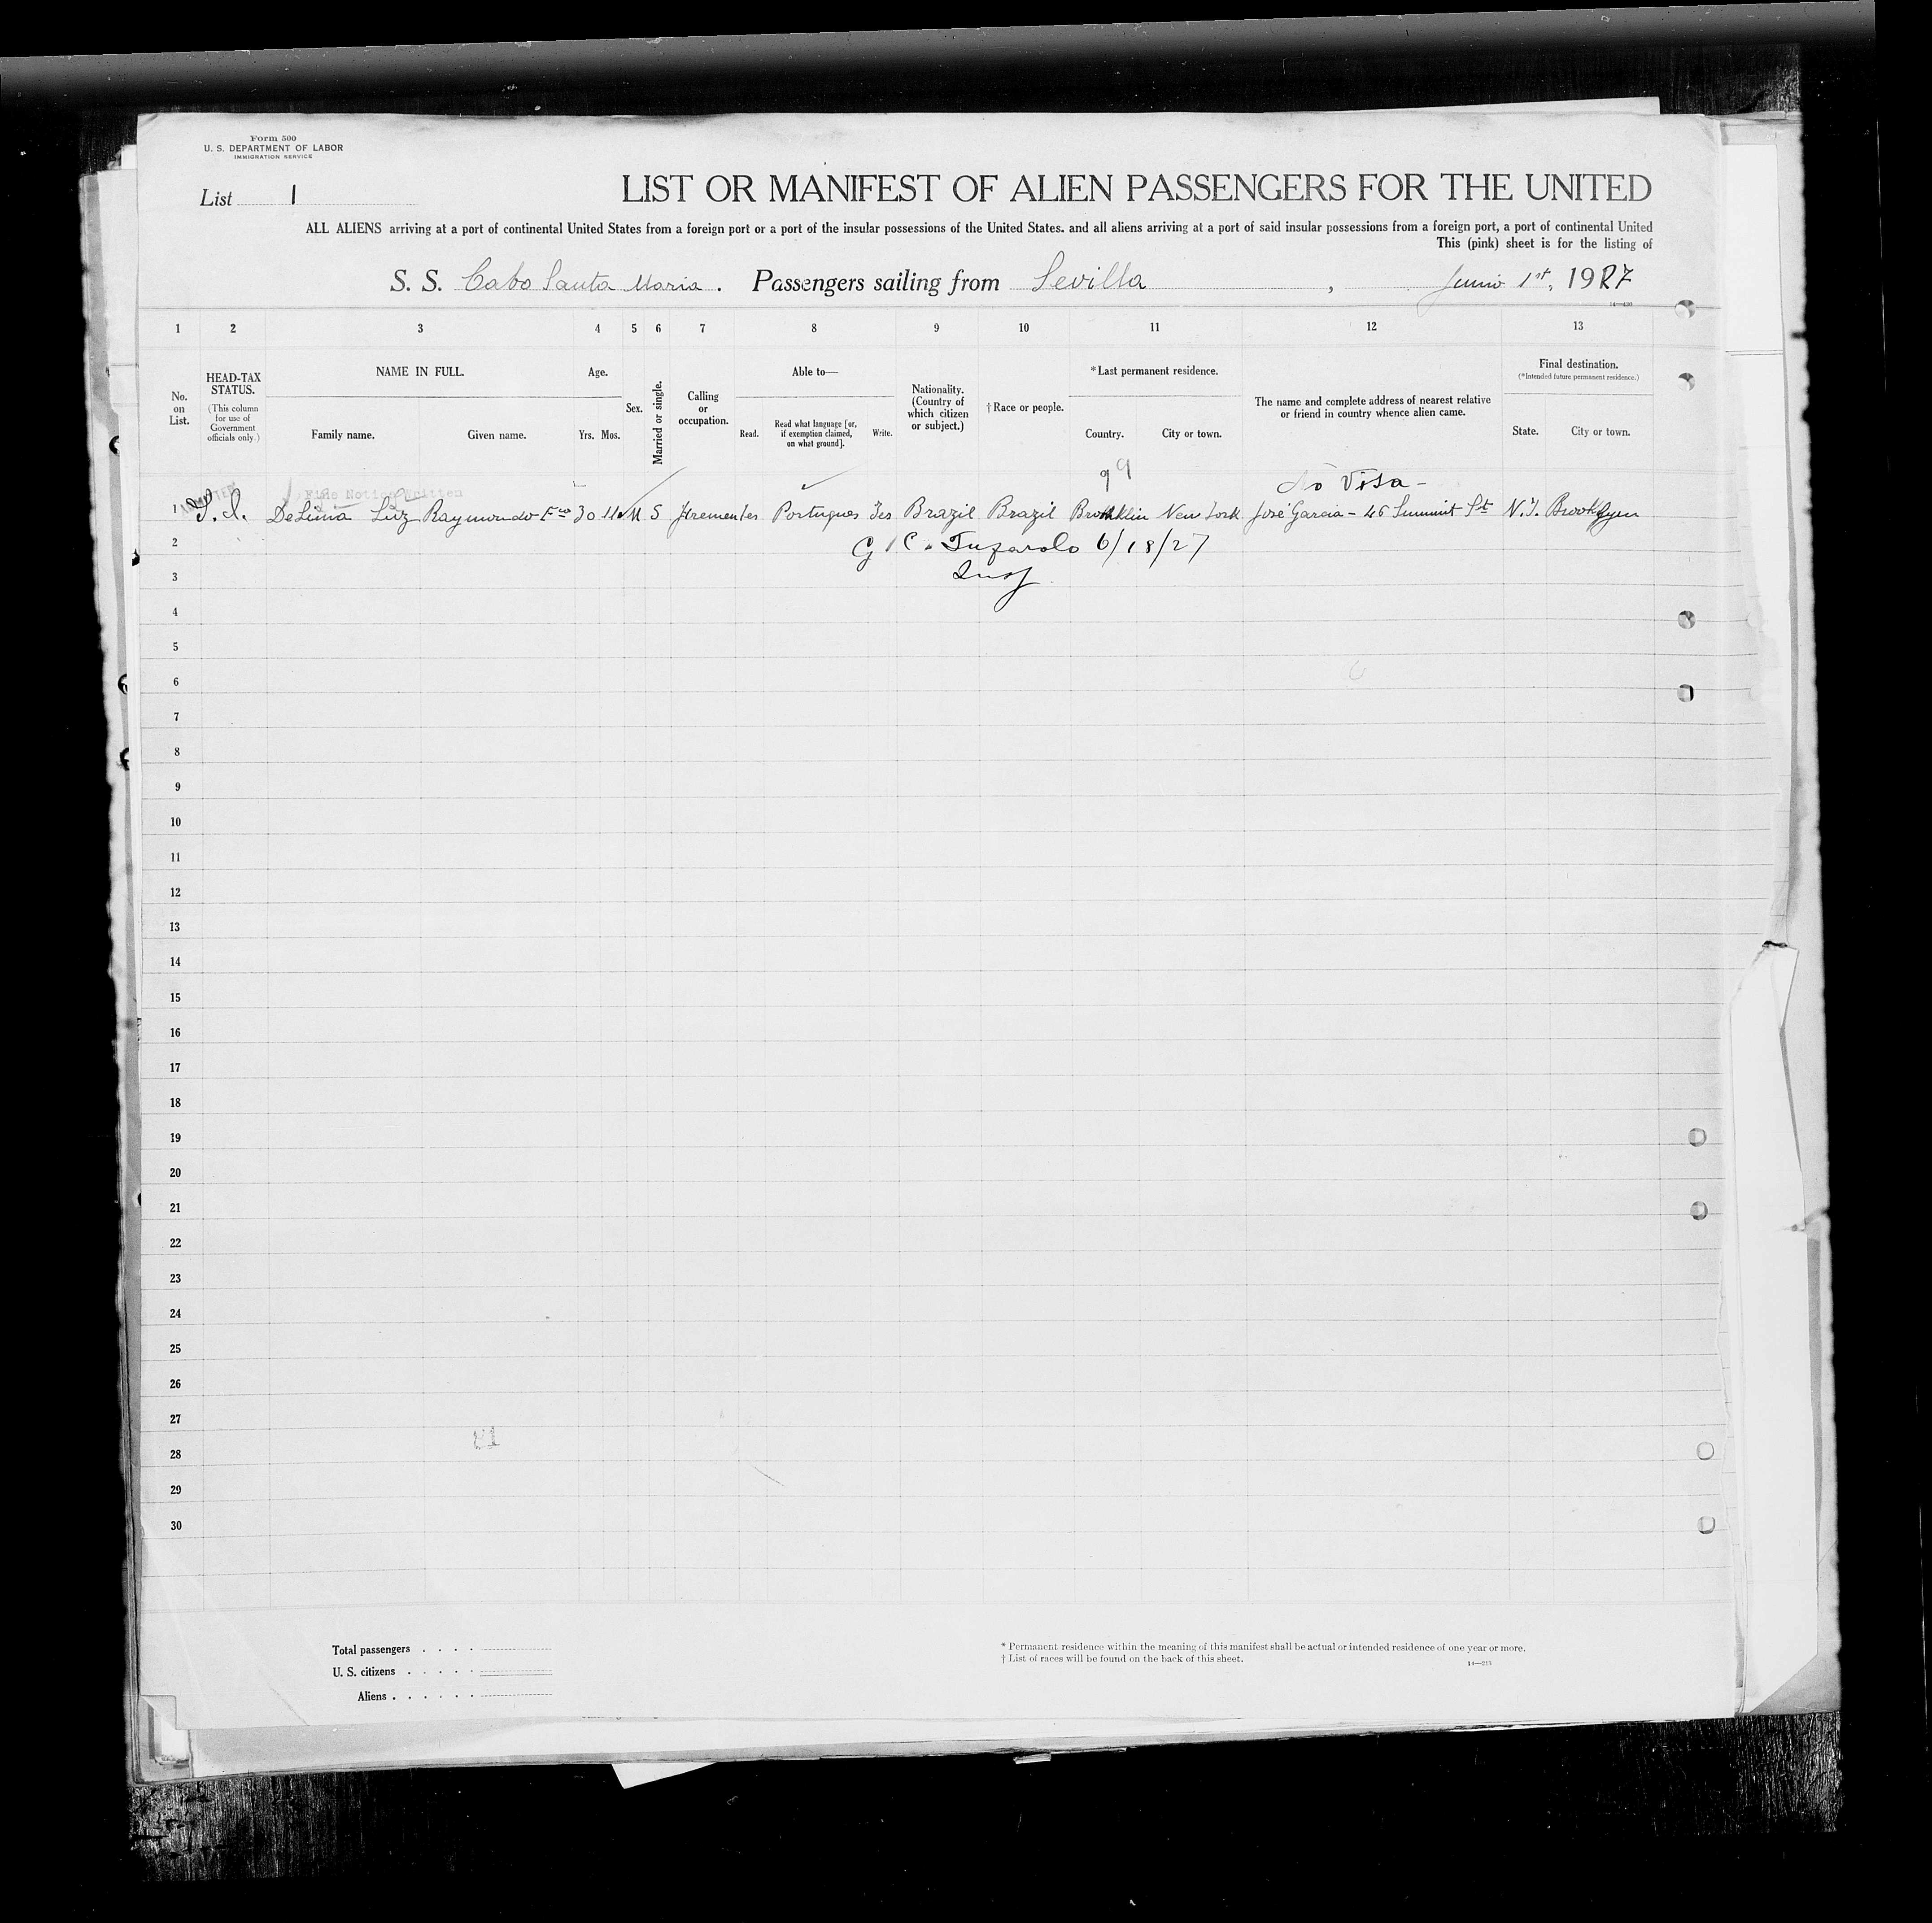 Form 500
U. S. DEPARTMENT OF LABOR
IMMIGRATION SERVICE
List 1
LIST OR MANIFEST OF ALIEN PASSENGERS FOR THE UNITED
ALL ALIENS arriving at a port of continental United States from a foreign port or a port of the insular possessions of the United States. and all aliens arriving at a port of said insular possessions from a foreign port, a port of continental United
This (pink) sheet is for the listing of
S. S. Cabo Santa Maria. Passengers sailing from Sevilla, Junio 1st, 1927
1 2 3 4 5 6 7 8 9 10 11 12 13
No. on List.
HEAD-TAX STATUS.
(This column for use of Government officials only.)
NAME IN FULL.
Family name. Given name.
Age.
Yrs. Mos.
Sex.
Married or single.
Calling or occupation.
Able to—
Read. Read what language [or, if exemption claimed, on what ground]. Write.
Nationality. (Country of which citizen or subject.)
† Race or people.
* Last permanent residence.
Country. City or town.
The name and complete address of nearest relative or friend in country whence alien came.
Final destination.
(*Intended future permanent residence.)
State. City or town.
99 No Visa -
Fine Notice Written
1 DeLima Luz Raymundo Fco 30 11 M S Yes Portugues Yes Brazil Brazil Brooklin New York José Garcia - 46 Summit St N.Y. Brooklyn
2 6/18/27
3 Insp
4
5
6
7
8
9
10
11
12
13
14
15
16
17
18
19
20
21
22
23
24
25
26
27
28
29
30
Total passengers
U. S. citizens
Aliens
* Permanent residence within the meaning of this manifest shall be actual or intended residence of one year or more.
† List of races will be found on the back of this sheet.